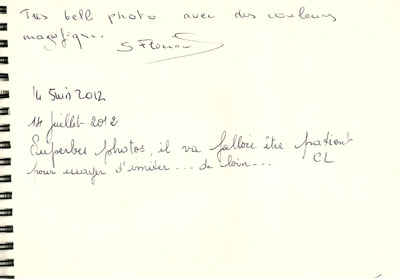 Tres bell photo avec des couleurs
magnifique.
14 Juin 2012
14 Juillet 2012
Superbes photos, il va falloir être patient
pour essayer d'imiter... de loin...
CL